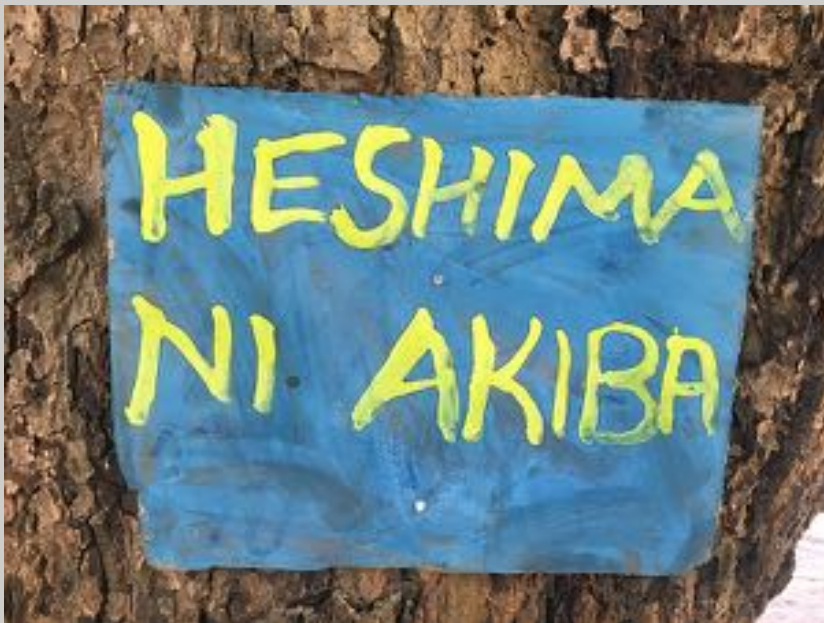 HESHIMA
NI AKIBA